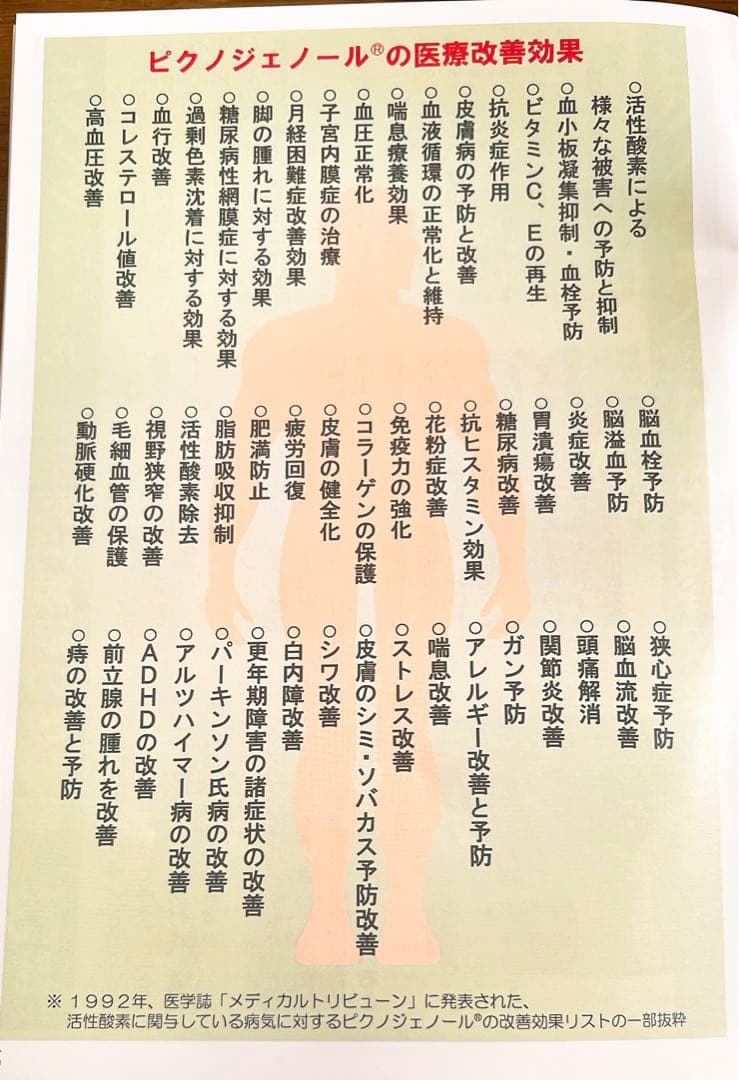 ピクノジェノール®の医療改善効果
○活性酸素による
様々な被害への予防と抑制
○血小板凝集抑制・血栓予防
○ビタミンC、Eの再生
○抗炎症作用
○皮膚病の予防と改善
○血液循環の正常化と維持
○喘息療養効果
○血圧正常化
○子宮内膜症の治療
○月経困難症改善効果
○脚の腫れに対する効果
○糖尿病性網膜症に対する効果
○過剰色素沈着に対する効果
○血行改善
○コレステロール値改善
○高血圧改善
○脳血栓予防
○脳溢血予防
○炎症改善
○胃潰瘍改善
○糖尿病改善
○抗ヒスタミン効果
○花粉症改善
○免疫力の強化
○コラーゲンの保護
○皮膚の健全化
○疲労回復
○肥満防止
○脂肪吸収抑制
○活性酸素除去
○視野狭窄の改善
○毛細血管の保護
○動脈硬化改善
○狭心症予防
○脳血流改善
○頭痛解消
○関節炎改善
○ガン予防
○アレルギー改善と予防
○喘息改善
○ストレス改善
○皮膚のシミ・ソバカス予防改善
○シワ改善
○白内障改善
○更年期障害の諸症状の改善
○パーキンソン氏病の改善
○アルツハイマー病の改善
○ADHDの改善
○前立腺の腫れを改善
○痔の改善と予防
※ 1992年、医学誌「メディカルトリビューン」に発表された、
活性酸素に関与している病気に対するピクノジェノール®の改善効果リストの一部抜粋